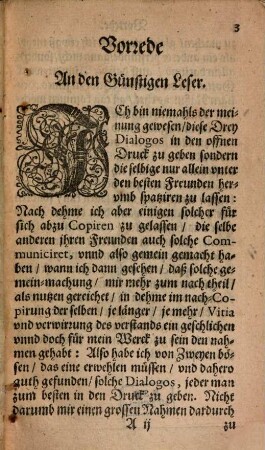 3
Vorrede
An den Günstigen Leser.
ICh bin niemahls der mei-
nung gewesen/diese Drey
Dialogos in den offnen
Druck zu geben sondern
die selbige nur allein vnter
den besten Freunden her-
vmb spaziren zu lassen:
Nach dehme ich aber einigen solcher für
sich abzu Copiren zu gelassen/ die selbe
anderen jhren Freunden auch solche Com-
municiret, vnnd also gemein gemacht ha-
ben/ wann ich dann gesehen/ daß solche ge-
mein-machung/ mir mehr zum nach theil/
als nutzen gereichet/ in dehme im nach-Co-
pirung der selben/ je länger/ je mehr/ Vitia
vnd verwirung des verstands ein geschlichen
vnnd doch für mein Werck zu sein den nah-
men gehabt: Also habe ich von Zweyen bö-
sen/ das eine erwehlen müssen/ vnd dahero
guth gefunden/ solche Dialogos, jeder man
zum besten in den Druck zu geben. Nicht
darumb mir einen grossen Nahmen dardurch
A ij zu